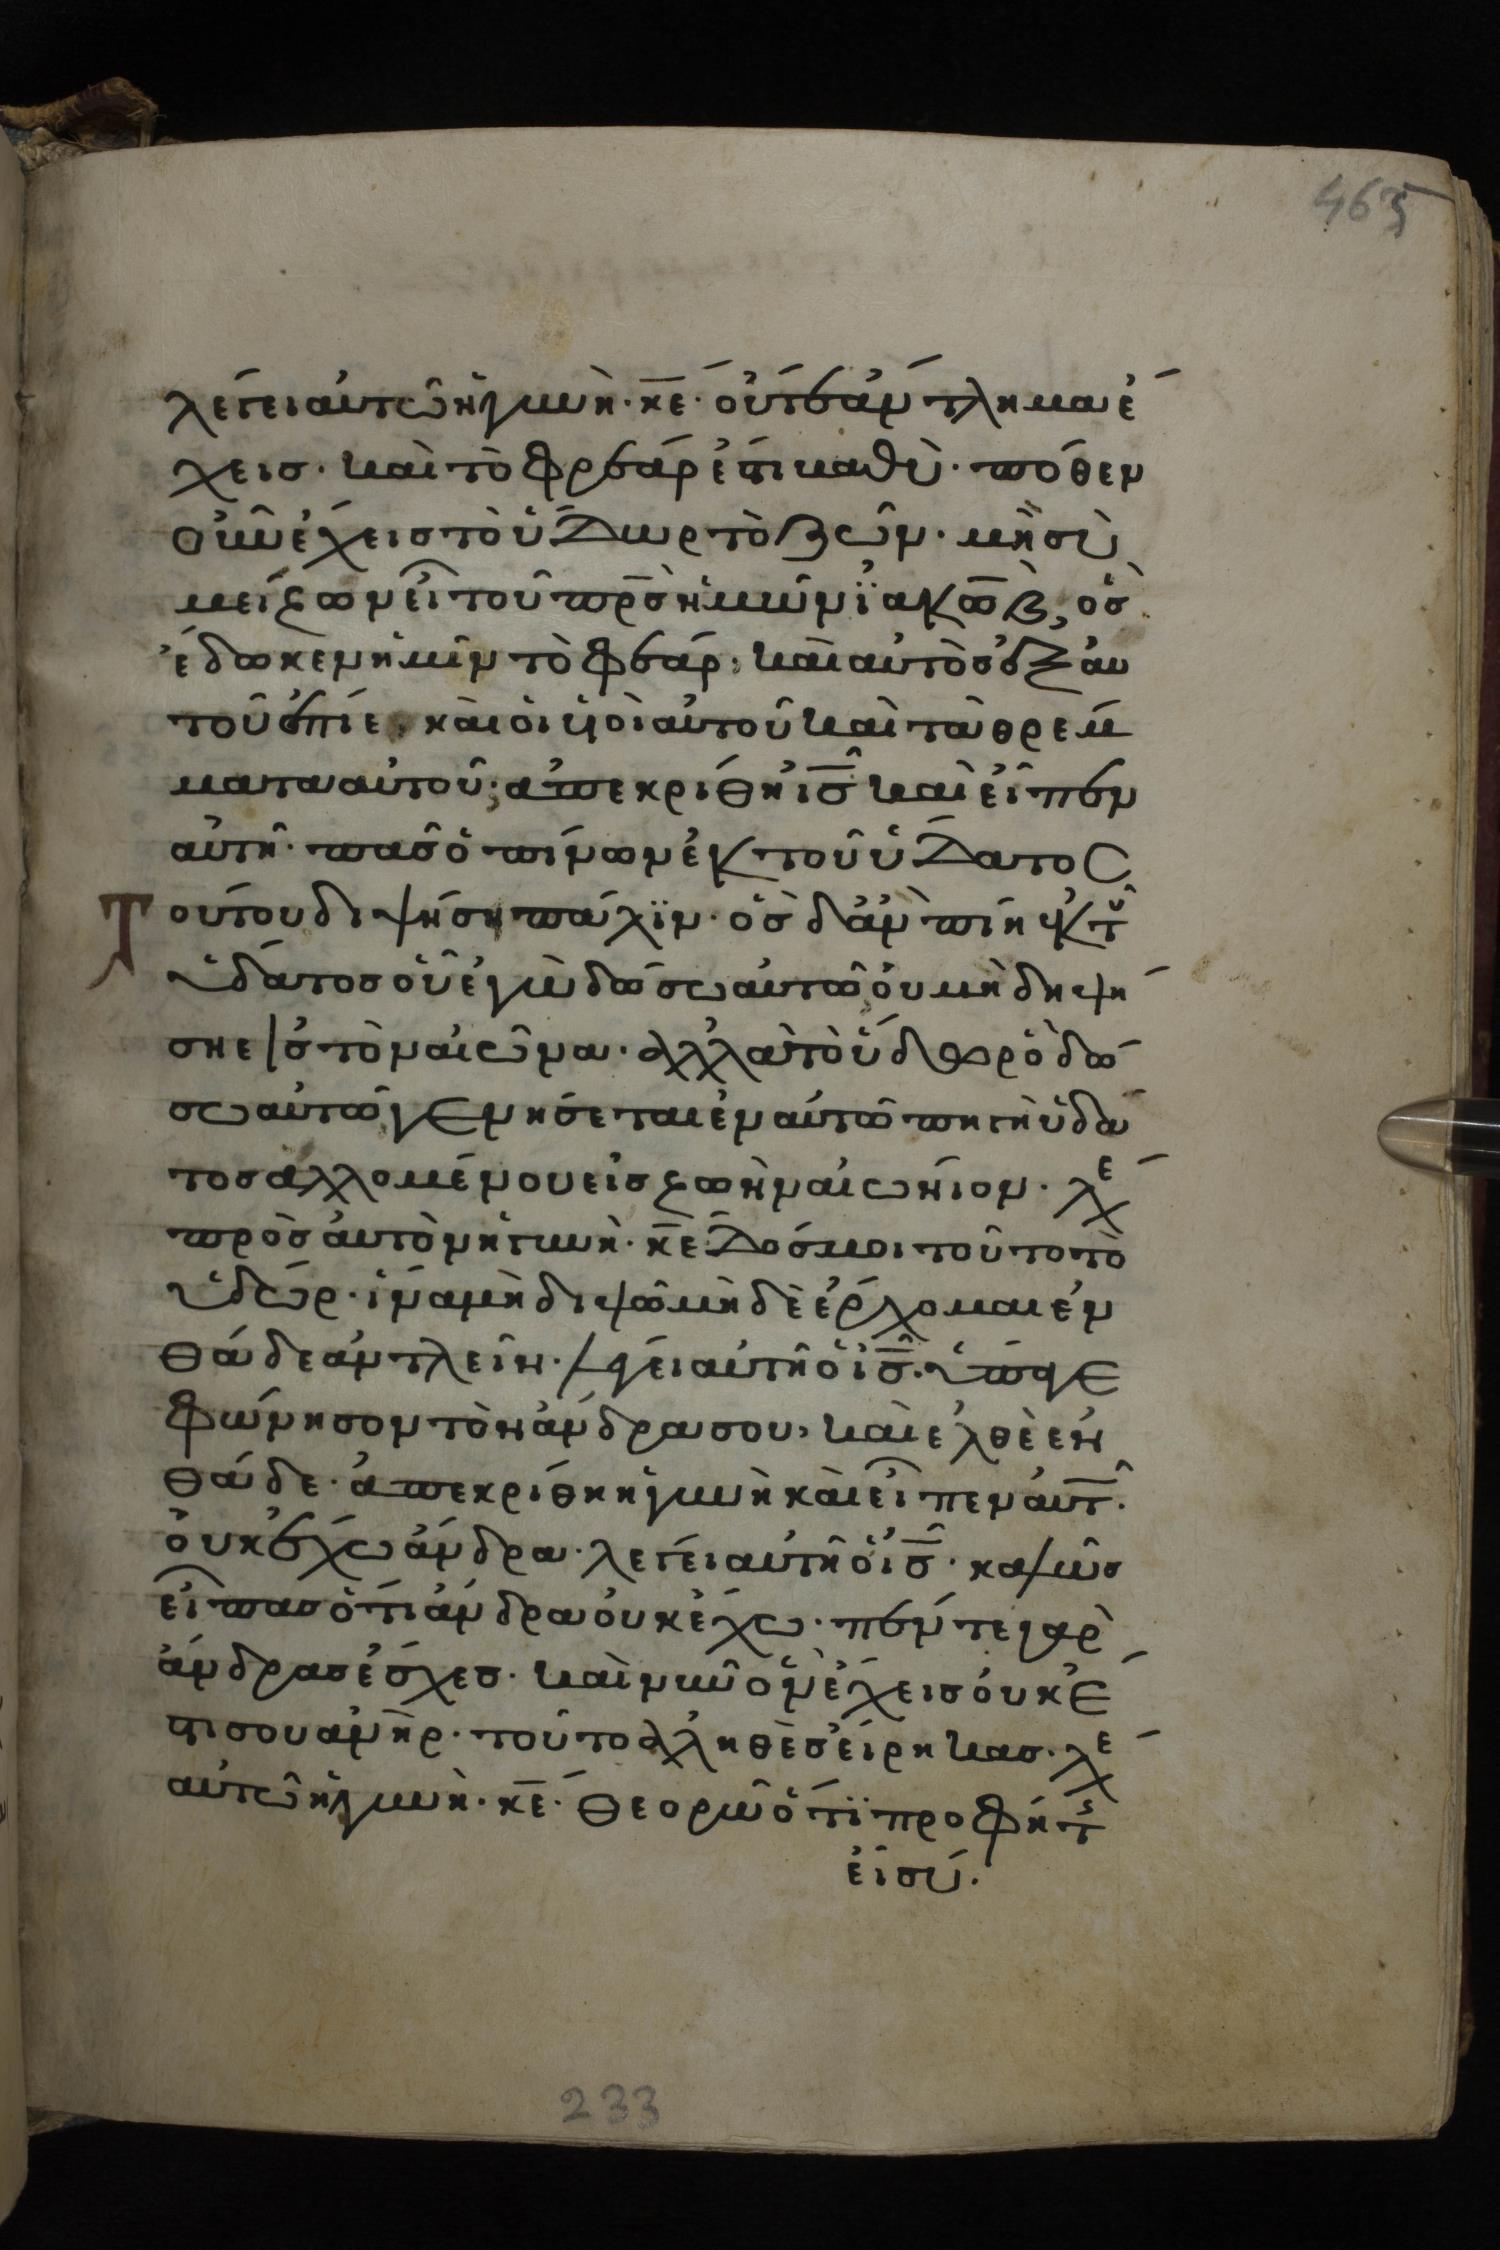 465
λέγει αυτῶ ἡ γυνὴ· κ̅ε̅· οὔτε ἄντλημα ἔ
χεις· καὶ τὸ φρέαρ ἐστὶ καθὺ· πόθεν
οὖν ἔχεις τὸ ὕδωρ τὸ ζῶν· μὴ σὺ
μείζων εἶ τοῦ πρ̅ς̅ ἡμῶν ϊακὼβ, ὃς
ἔδωκεν ἡμῖν τὸ φρέαρ· καὶ αὐτὸς ἐξ αυ
τοῦ ἔπιε, καὶ οἱ ὑοὶ αὐτοῦ καὶ τὰ θρέμ
ματα αὐτοῦ· ἀπεκρίθη ι̅ς̅ καὶ εἶπεν
αὐτῆ· πᾶς ὁ πίνων ἐκ τοῦ ὕδατος
Τούτου διψήση πάλϊν· ὃς δ ἂν πίη ἐκ τοῦ
ὕδατος οὗ ἐγὼ δώσω αυτῶ ὀυ μὴ δηψή
ση ειστὸν αἰῶνα· ἀλλὰ τὸ ὕδωρ ὃ δώ
σω αὐτῶ γενήσεται ἐν αὐτῶ πηγὴ ὕδα
τος αλλομένου εἰς ζωὴν αἰωνήιον· λέ
πρὸς ἀυτὸν ἡ γυνὴ· κ̅ε̅ δός μοι τοῦτο τὸ
ὕδωρ· ἵνα μὴ διψῶ μὴδὲ ἔρχομαι ἐν
θάδε ἀντλεῖν· λέγει αὐτῆ ὁ ι̅ς̅· ὕπαγε
φώνησον τὸν ἄνδρα σου, καὶ ελθὲ εν
θάδε· ἀπεκρίθη ἡ γυνὴ καὶ εἶπεν ἀυτ̅·
ὀυκ ἔχω ἄνδρα· λέγει αὐτῆ ὁ ι̅ς̅· καλῶς
εἶπας ὅτι ἄνδρα ὀυκ ἔχω· πέντε γαρ
ἄνδρας ἔσχες· καὶ νῦν ὃν ἔχεις ὀυκ ἔ
στι σου ἀνὴρ· τοῦτο ἀληθὲς εἴρηκας· λέ
αυτῶ ἡ γυνὴ· κ̅ε̅· θεορῶ ὅτϊ προφήτης
εἶ σύ·
233